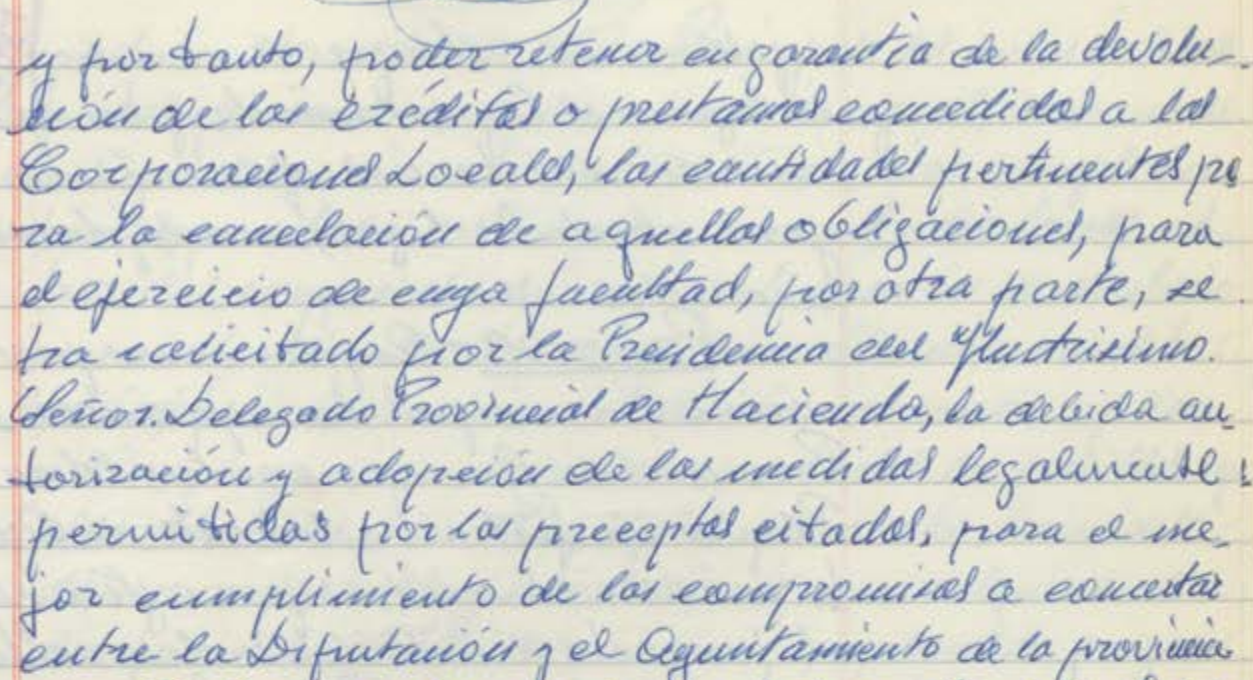 y por tanto, poder retener en garantía de la devolu-
ción de los créditos o prestamos concedidos a las
Corporaciones Locales, las cantidades pertinentes pa
ra la cancelación de aquellas obligaciones, para
el ejercicio de cuya facultad, por otra parte, se
ha solicitado por la Presidencia del Ilustrisimo.
Señor. Delegado Provincial de Hacienda, la debida au-
torización y adopción de las medidas legalmente
permitidas por los preceptos citados, para el me-
jor cumplimiento de los compromisos a concertar
entre la Diputación y el Ayuntamiento de la provincia